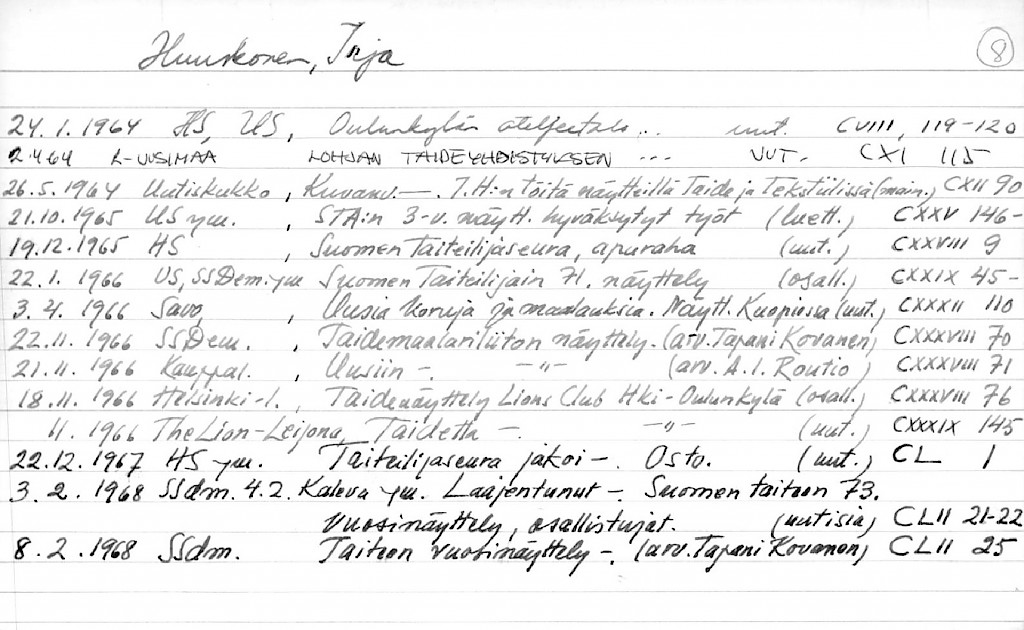 Huuskonen, Irja 8
24.1.1964 HS, US, Oulunkylän ateljeetalo... uut. CVIII, 119-120
2.4.64 L-UUSIMAA LOHJAN TAIDEYHDISTYKSEN ... UUT. CXI 115
26.5.1964 Uutiskukko, Kuvanv.—. I.H:n töitä näytteillä Taide ja Tekstiilissä (main.) CXII 90
21.10.1965 US ym., STA:n 3-v. näytt. hyväksytyt työt (luett.) CXXV 146-
19.12.1965 HS, Suomen Taiteilijaseura, apuraha (uut.) CXXVIII 9
22.1.1966 US, SSDem. ym Suomen Taiteilijain 71. näyttely (osall.) CXXIX 45-
3.4.1966 Savo, Uusia koruja ja maalauksia. Näytt. Kuopiossa (uut.) CXXXII 110
22.11.1966 SSDem., Taidemaalariliiton näyttely. (arv. Tapani Kovanen) CXXXVIII 70
21.11.1966 Kauppal., Uusiin –. –"– (arv. A.I. Routio) CXXXVIII 71
18.11.1966 Helsinki-l., Taidenäyttely Lions Club Hki-Oulunkylä (osall.) CXXXVIII 76
11.1966 The Lion-Leijona, Taidetta –. –"– (uut.) CXXXIX 145
22.12.1967 HS ym. Taiteilijaseura jakoi –. Osto. (uut.) CL 1
3.2.1968 SSdm. 4.2. Kaleva ym. Laajentunut –. Suomen taiteen 73.
vuosinäyttely, osallistujat. (uutisia) CLII 21-22
8.2.1968 SSdm. Taiteen vuosinäyttely –. (arv. Tapani Kovanen) CLII 25